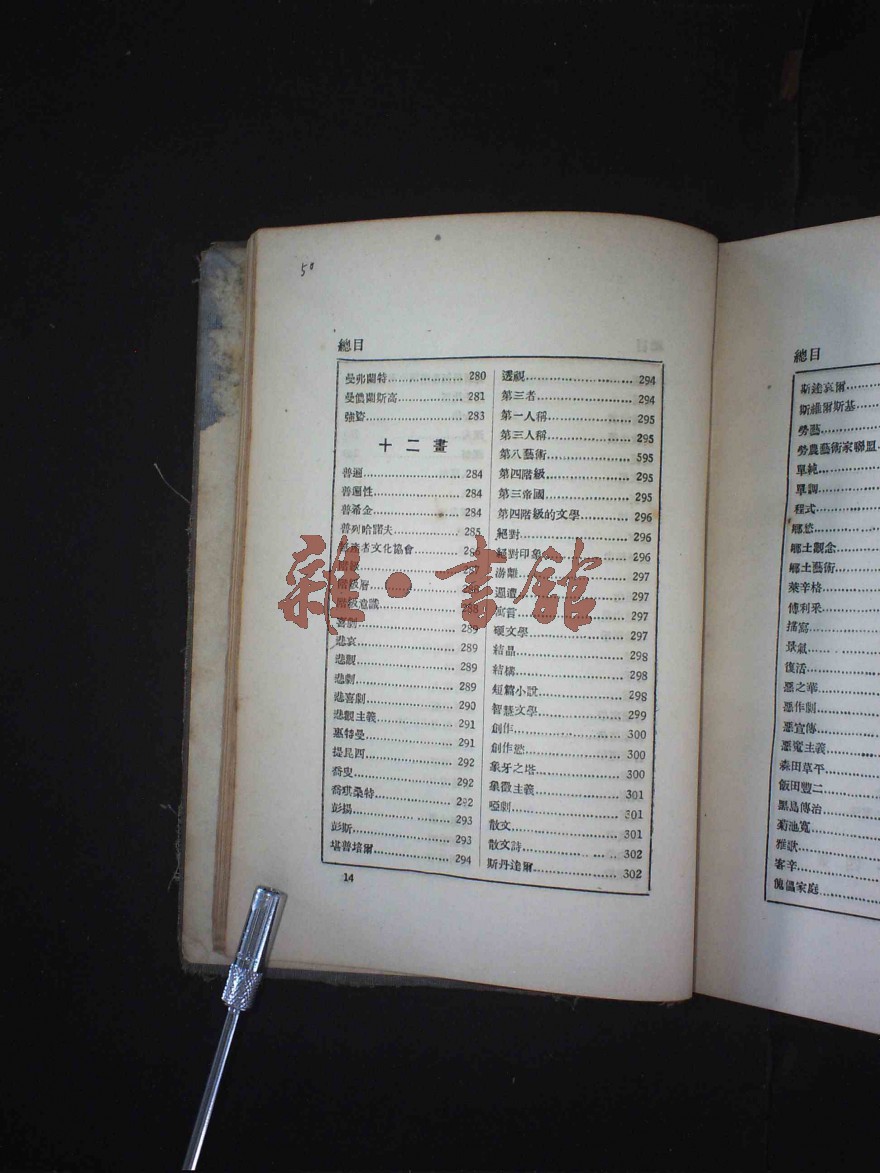 50
總目
曼弗蘭特 280
曼儂蘭斯高 281
強盜 283
十二畫
普遍 284
普遍性 284
普希金 284
普列哈諾夫 285
者文化協會 286
287
階級層 288
階級意識 288
喜劇 289
悲哀 289
悲觀 289
悲劇 289
悲喜劇 290
悲觀主義 291
惠特曼 291
提昆四 292
喬叟 292
喬琪桑特 292
彭揚 293
彭斯 293
堪普培爾 294
透視 294
第三者 294
第一人稱 295
第三人稱 295
第八藝術 595
第四階級 295
第三帝國 295
第四階級的文學 296
絕對 296
絕對印象 296
游離 297
週遭 297
寓言 297
頌文學 297
結晶 298
結構 298
短篇小說 298
智慧文學 299
創作 300
創作慾 300
象牙之塔 300
象徵主義 301
啞劇 301
散文 301
散文詩 302
斯丹達爾 302
14
總目
斯達哀爾
斯維爾斯基
勞藝
勞農藝術家聯盟
單純
單調
程式
鄉愁
鄉土觀念
鄉土藝術
萊辛格
傅利采
描寫
景氣
復活
惡之華
惡作劇
惡宣傳
惡魔主義
森田草平
飯田豐二
黑島傳治
菊池寬
雅歌
客辛
傀儡家庭
雜·書館